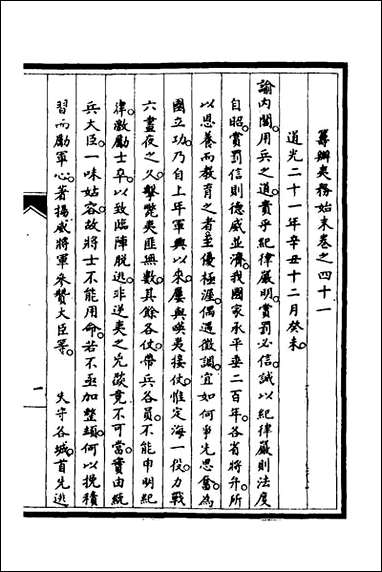 籌辦夷務始末卷之四十一
道光二十一年辛丑十二月癸未
諭內閣用兵之道貴乎紀律嚴明賞罰必信誠以紀律嚴則法度
自昭賞罰信則德威並濟我國家承平垂二百年各省將弁所
以恩養而教育之者至優極渥偶遇徵調宜如何爭先思奮為
國立功乃自上年軍興以來屢與㗸夷接仗惟定海一役力戰
六晝夜之久擊斃夷匪無數其餘各仗帶兵各員不能申明紀
律激勵士卒以致臨陣脫逃非逆夷之兇燄竟不可當實由統
兵大臣一味姑容故將士不能用命若不亟加整頓何以挽積
習而勵軍心著揚威將軍參贊大臣等 失守各城首先逃
一